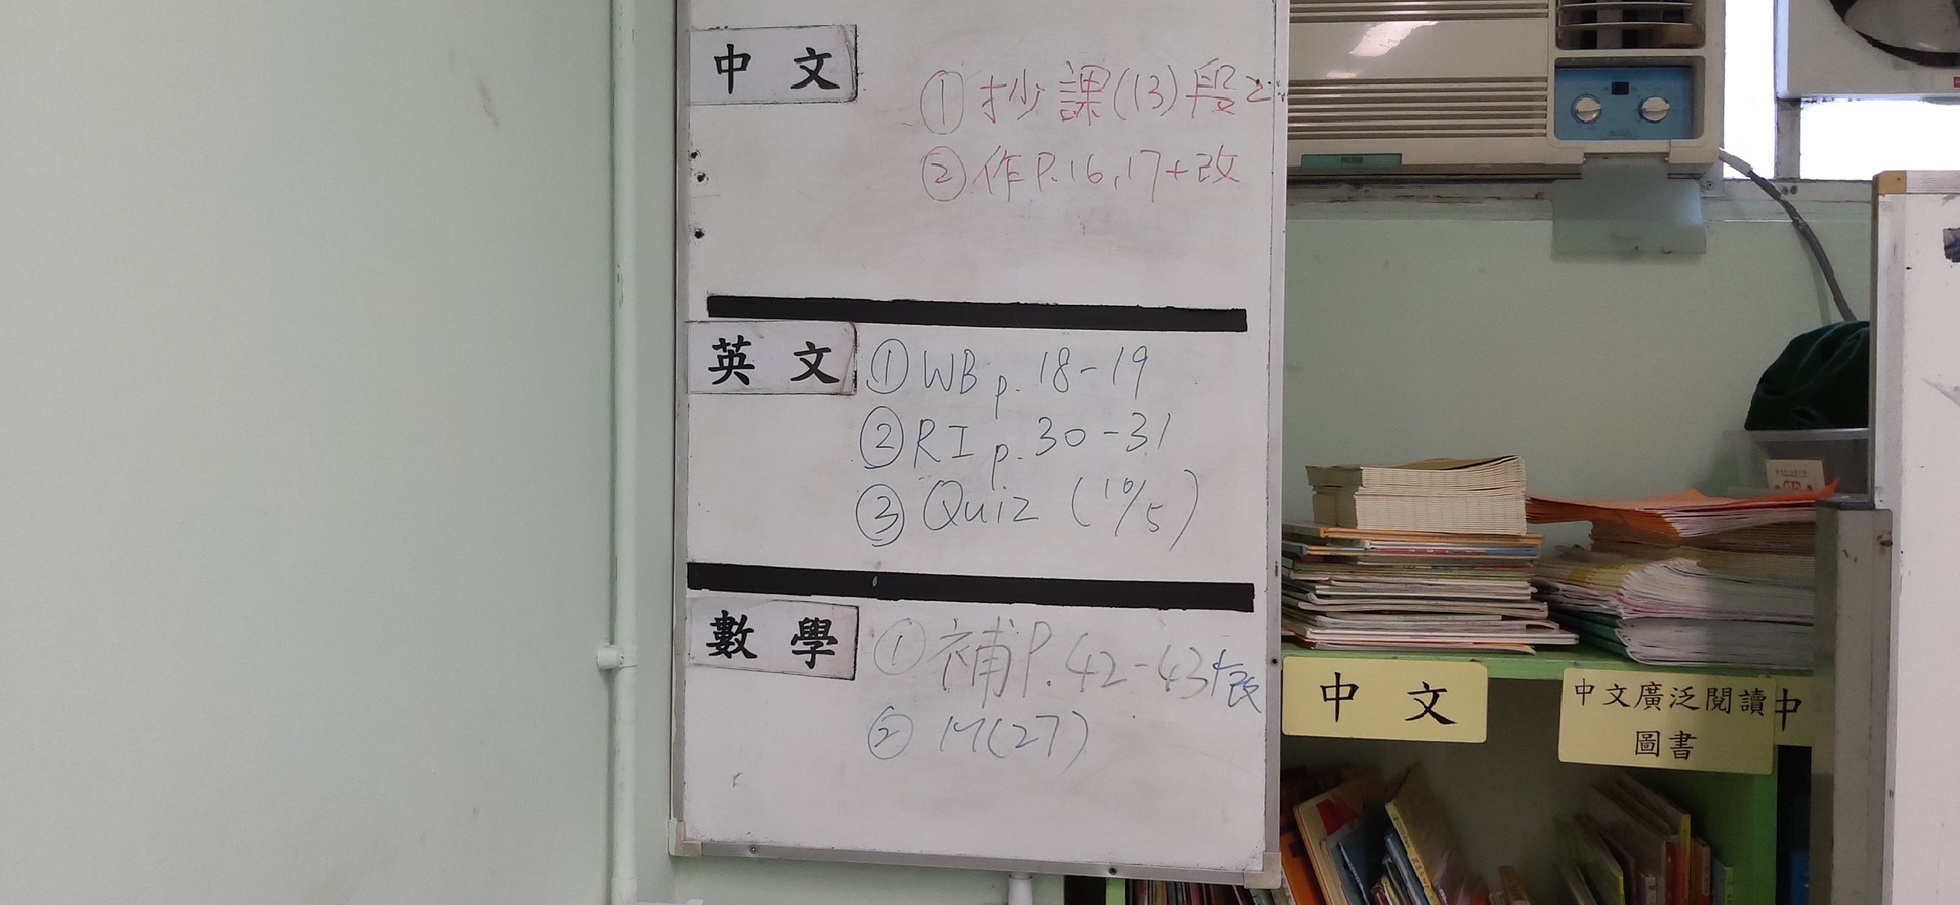 中文
① 抄課(13)段2
② 作P.16,17+改
英文
① WB p. 18-19
② RI p. 30-31
③ Quiz (10/5)
數學
① 補P.42-43+改
② M(27)
中文
中文廣泛閱讀
圖書
中